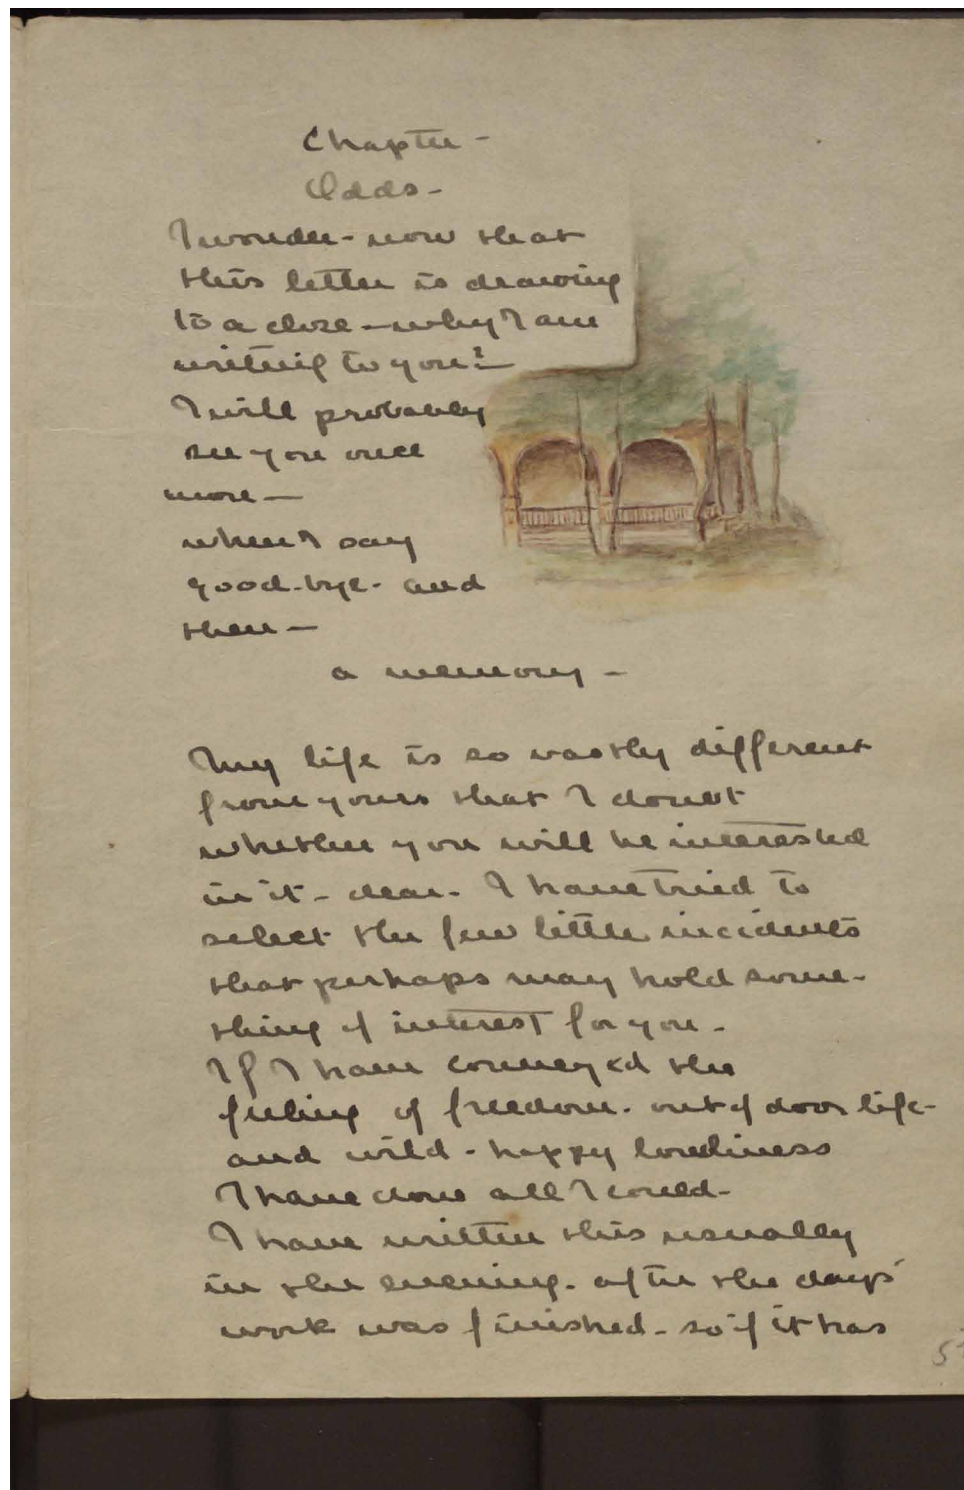 Chapter -
Odds -
I wonder - now that
this letter is drawing
to a close - why I am
writing to you? -
I will probably
see you once
more -
when I say
good-bye - and
then -
a memory -
My life is so vastly different
from yours that I doubt
whether you will be interested
in it - dear - I have tried to
select the few little incidents
that perhaps may hold some-
thing of interest for you -
If I have conveyed the
feeling of freedom - out of door life -
and wild - happy loneliness
I have done all I could -
I have written this usually
in the evening - after the days'
work was finished - so if it has